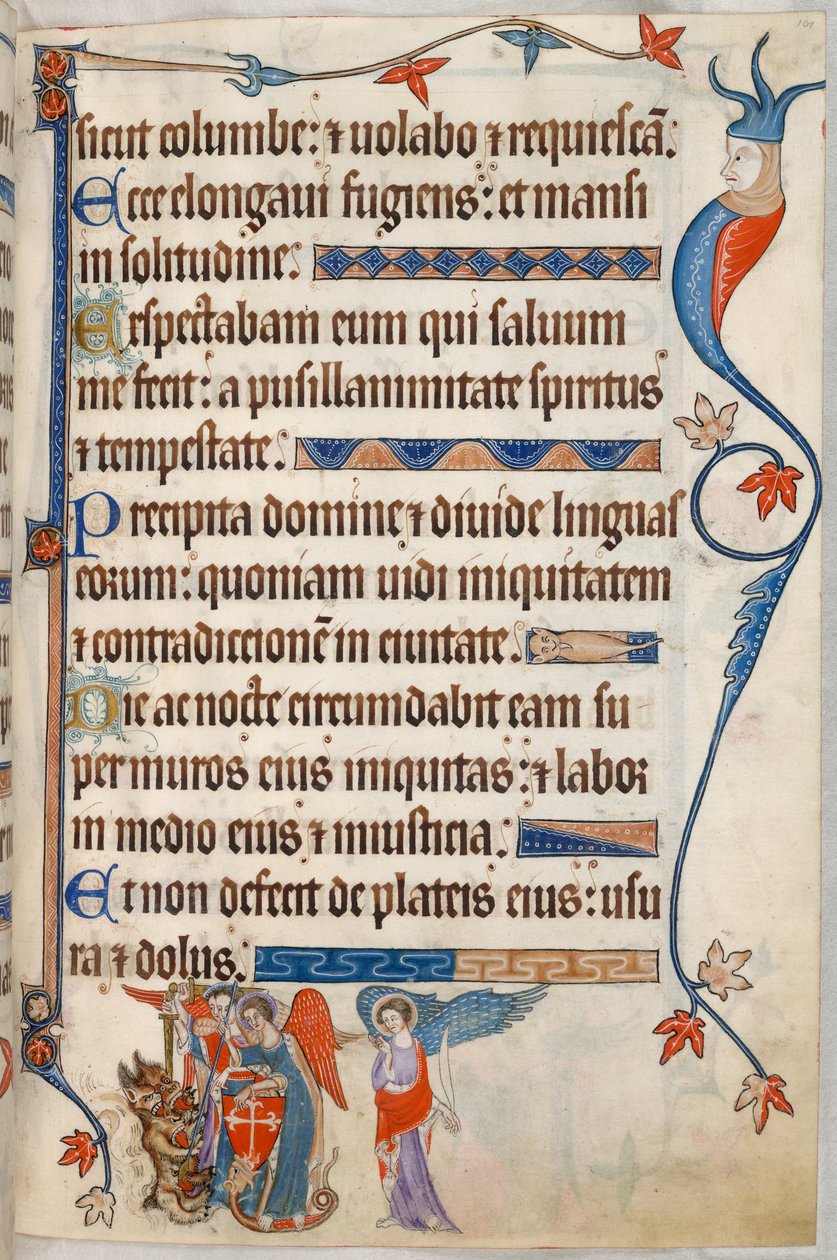 101
sicut columbe: ⁊ uolabo ⁊ requiescā:
Ecce elongaui fugiens: et mansi
in solitudine:
Exspectabam eum qui saluum
me fecit: a pusillanimitate spiritus
⁊ tempestate:
Precipita domine ⁊ diuide linguas
eorum: quoniam uidi iniquitatem
⁊ contradiccionē in ciuitate.
Die ac nocte circumdabit eam su
per muros eius iniquitas: ⁊ labor
in medio eius ⁊ iniusticia.
Et non defecit de plateis eius: usu
ra ⁊ dolus.